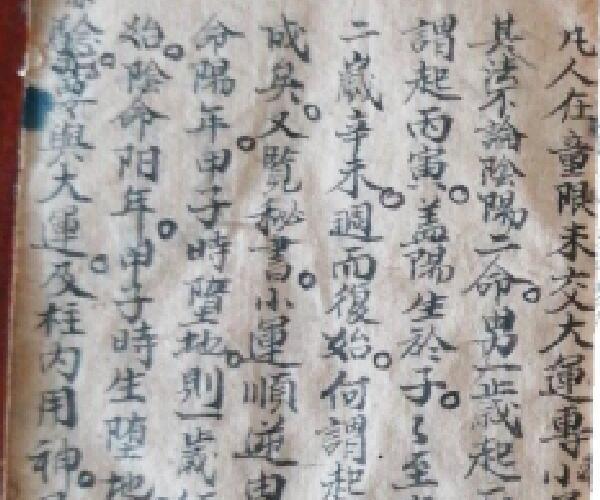 凡人在童限未交大運專小
其法不論陰陽二命男一歲起
謂起丙寅盖陽生於子〻至
二歲辛未週而復始何謂起
成矣又覧秘書小運順逆由
命陽年甲子時墮地則一歲
始陰命阳年甲子時生墮地
與大運及柱内用神